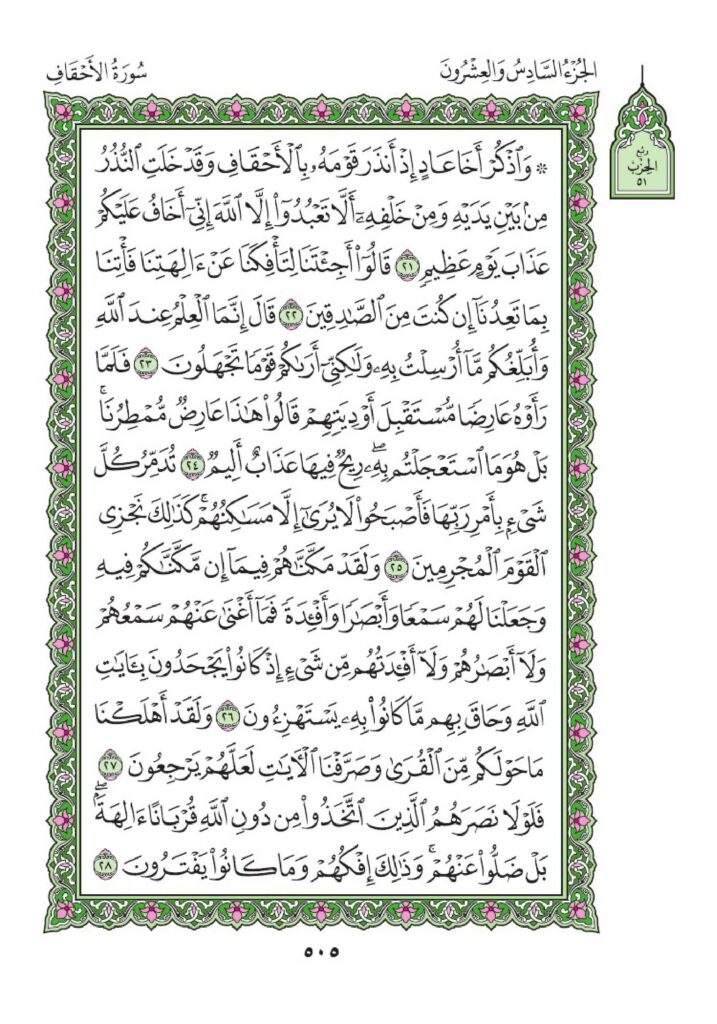 الجُزْءُ السَّادِسُ وَالعِشْرُونَ
سُورَةُ الأَحْقَافِ
رُبْع
الحِزْب
٥١
* وَٱذْكُرْ أَخَا عَادٍ إِذْ أَنذَرَ قَوْمَهُۥ بِٱلْأَحْقَافِ وَقَدْ خَلَتِ ٱلنُّذُرُ
مِنۢ بَيْنِ يَدَيْهِ وَمِنْ خَلْفِهِۦٓ أَلَّا تَعْبُدُوٓا۟ إِلَّا ٱللَّهَ إِنِّىٓ أَخَافُ عَلَيْكُمْ
عَذَابَ يَوْمٍ عَظِيمٍ ٢١ قَالُوٓا۟ أَجِئْتَنَا لِتَأْفِكَنَا عَنْ ءَالِهَتِنَا فَأْتِنَا
بِمَا تَعِدُنَآ إِن كُنتَ مِنَ ٱلصَّـٰدِقِينَ ٢٢ قَالَ إِنَّمَا ٱلْعِلْمُ عِندَ ٱللَّهِ
وَأُبَلِّغُكُم مَّآ أُرْسِلْتُ بِهِۦ وَلَـٰكِنِّىٓ أَرَىٰكُمْ قَوْمًا تَجْهَلُونَ ٢٣ فَلَمَّا
رَأَوْهُ عَارِضًا مُّسْتَقْبِلَ أَوْدِيَتِهِمْ قَالُوا۟ هَـٰذَا عَارِضٌ مُّمْطِرُنَا ۚ
بَلْ هُوَ مَا ٱسْتَعْجَلْتُم بِهِۦ ۖ رِيحٌ فِيهَا عَذَابٌ أَلِيمٌ ٢٤ تُدَمِّرُ كُلَّ
شَىْءٍۭ بِأَمْرِ رَبِّهَا فَأَصْبَحُوا۟ لَا يُرَىٰٓ إِلَّا مَسَـٰكِنُهُمْ ۚ كَذَٰلِكَ نَجْزِى
ٱلْقَوْمَ ٱلْمُجْرِمِينَ ٢٥ وَلَقَدْ مَكَّنَّـٰهُمْ فِيمَآ إِن مَّكَّنَّـٰكُمْ فِيهِ
وَجَعَلْنَا لَهُمْ سَمْعًا وَأَبْصَـٰرًا وَأَفْـِٔدَةً فَمَآ أَغْنَىٰ عَنْهُمْ سَمْعُهُمْ
وَلَآ أَبْصَـٰرُهُمْ وَلَآ أَفْـِٔدَتُهُم مِّن شَىْءٍ إِذْ كَانُوا۟ يَجْحَدُونَ بِـَٔايَـٰتِ
ٱللَّهِ وَحَاقَ بِهِم مَّا كَانُوا۟ بِهِۦ يَسْتَهْزِءُونَ ٢٦ وَلَقَدْ أَهْلَكْنَا
مَا حَوْلَكُم مِّنَ ٱلْقُرَىٰ وَصَرَّفْنَا ٱلْـَٔايَـٰتِ لَعَلَّهُمْ يَرْجِعُونَ ٢٧
فَلَوْلَا نَصَرَهُمُ ٱلَّذِينَ ٱتَّخَذُوا۟ مِن دُونِ ٱللَّهِ قُرْبَانًا ءَالِهَةًۢ ۖ
بَلْ ضَلُّوا۟ عَنْهُمْ ۚ وَذَٰلِكَ إِفْكُهُمْ وَمَا كَانُوا۟ يَفْتَرُونَ ٢٨
٥٠٥